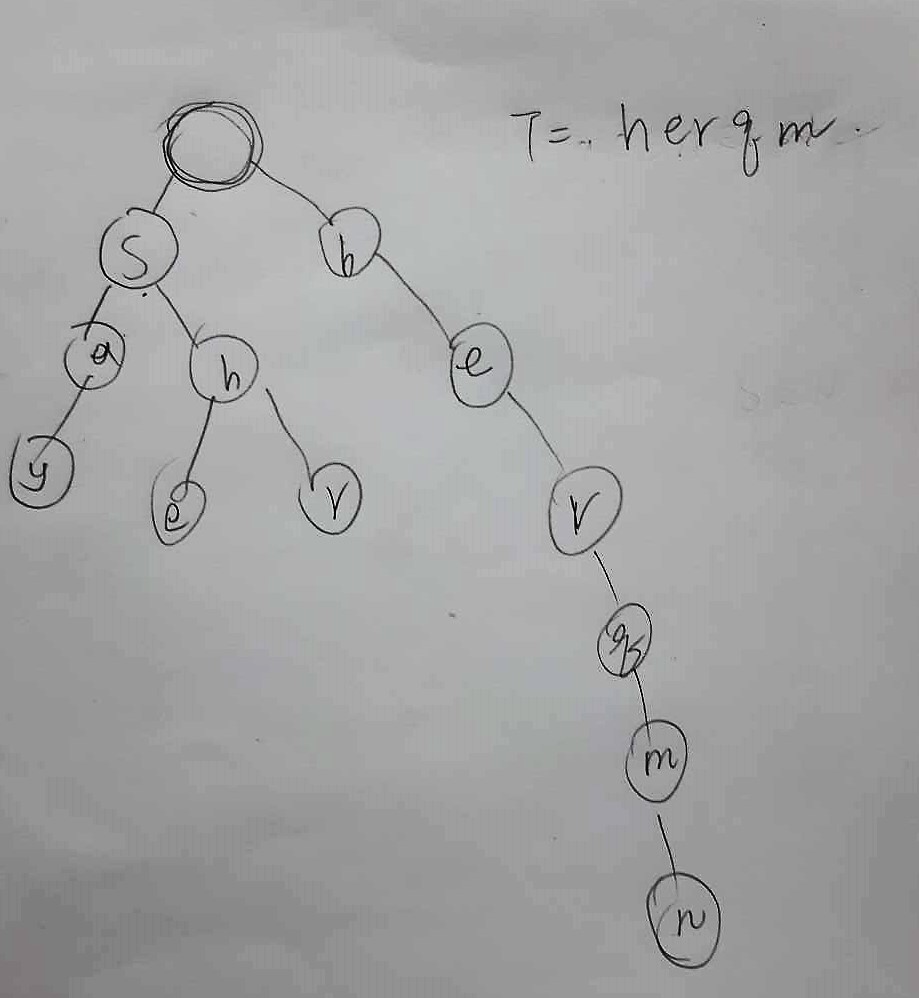 T= herqm
S
h
a
h
e
y
e
r
r
q
m
n